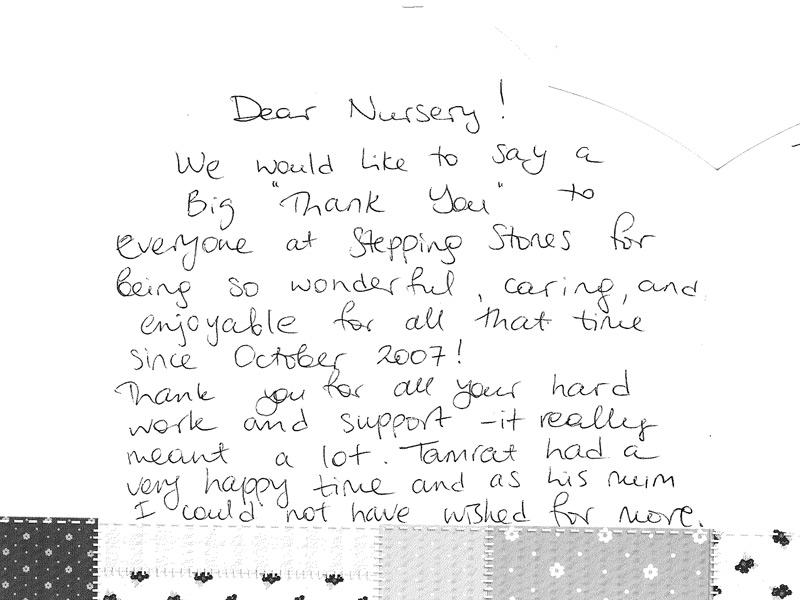 Dear Nursery!
We would like to say a
Big "Thank You" to
everyone at Stepping Stones for
being so wonderful, caring, and
enjoyable for all that time
since October 2007!
Thank you for all your hard
work and support - it really
meant a lot. Tamrat had a
very happy time and as his mum
I could not have wished for more.